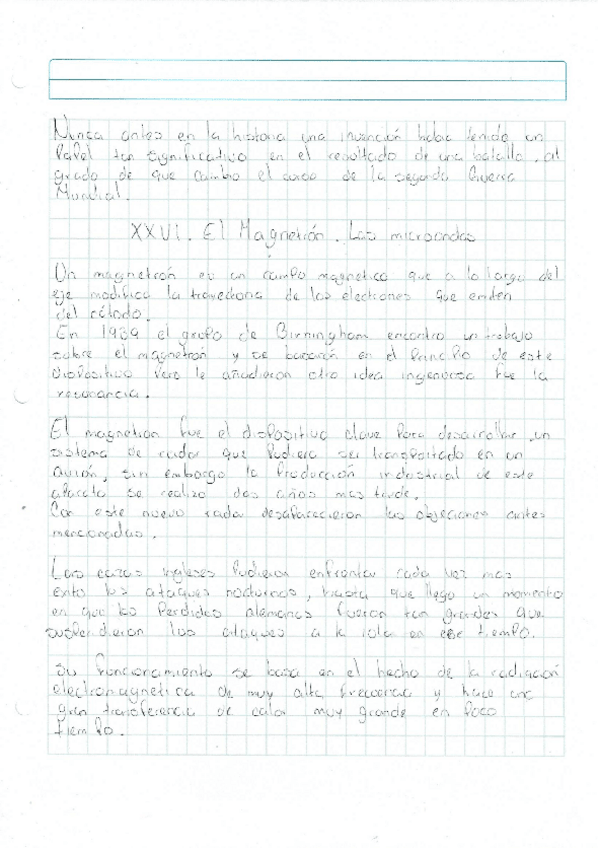 Nunca antes en la historia una invención habia tenido un
Papel tan significativo en el resultado de una batalla, al
grado de que cambio el curso de la segunda Guerra
Mundial.
XXVI. El Magnetrón. Las microondas
Un magnetrón es un campo magnetico que a lo largo del
eje modifica la trayectoria de los electrones que emiten
del cátodo.
En 1939 el grupo de Birmingham encontro un trabajo
sobre el magnetron y se basaron en el Principio de este
dispositivo Pero le añadieron otra idea ingeniosa fue la
resonancia.
El magnetron fue el dispositivo clave Para desarrollar un
sistema de radar que Pudiera ser transportado en un
avión, sin embargo la Producción industrial de este
aparato se realizo dos años mas tarde.
Con este nuevo radar desaparecieron las objeciones antes
mencionadas.
Los cazas ingleses Pudieron enfrentar cada vez mas
exito los ataques nocturnos, hasta que llego un momento
en que las Perdidas alemanas fueron tan grandes que
suspendieron los ataques a la isla en ese tiempo.
Su funcionamiento se basa en el hecho de la radiación
electromagnetica de muy alta frecuencia y hace una
gran transferencia de calor muy grande en Poco
tiempo.